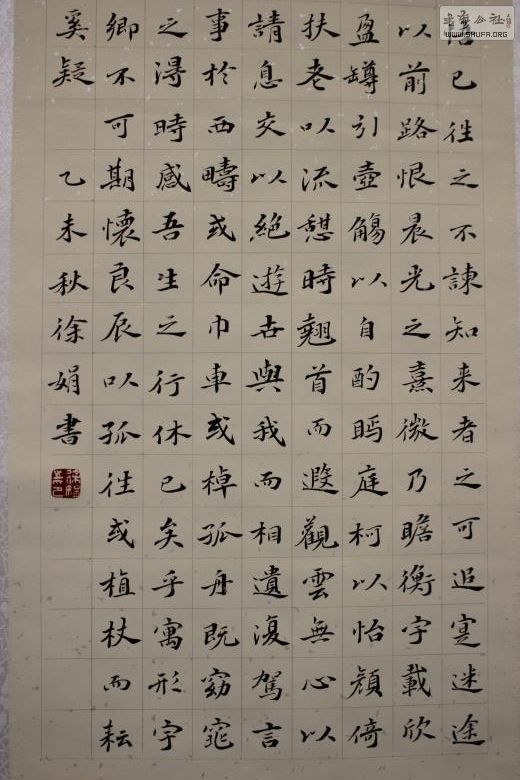 悟已往之不諫知来者之可追寔迷途
以前路恨晨光之熹微乃瞻衡宇載欣
盈罇引壺觴以自酌眄庭柯以怡顔倚
扶老以流憩時翹首而遐觀雲無心以
請息交以絶遊古與我而相遺復駕言
事於西疇或命巾車或棹孤舟既窈窕
之得時感吾生之行休已矣乎寓形宇
卿不可期懷良辰以孤往或植杖而耘
奚疑 乙未秋徐娟書
公社
WWW.SHUFA.ORG